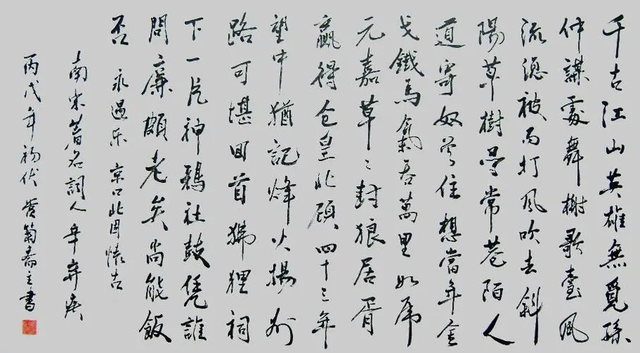 千古江山英雄無覓孫
仲謀處舞榭歌臺風
流總被雨打風吹去斜
陽草樹尋常巷陌人
道寄奴曾住想當年金
戈鐵馬氣吞萬里如虎
元嘉草々封狼居胥
贏得仓皇北顧四十三年
望中猶記烽火揚州
路可堪回首狒狸祠
下一片神鴉社鼓凭誰
問廉頗老矣尚能飯
否 永遇乐 京口北固懷古
南宋著名詞人辛弃疾
丙戌年初伏 翁斋主書